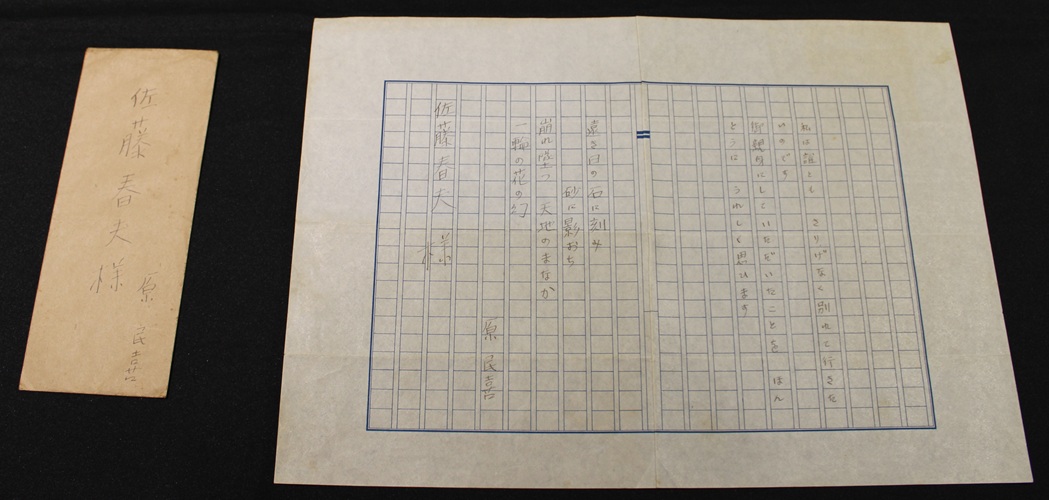 佐藤春夫様
原民喜
私は誰とも さりげなく別れて行きた
いのです
御懇意にしていただいたことを ほん
とうに うれしく思ひます
遠き日の石に刻み
砂に影おち
崩れ墜つ 天地のまなか
一輪の花の幻
原民喜
佐藤春夫様